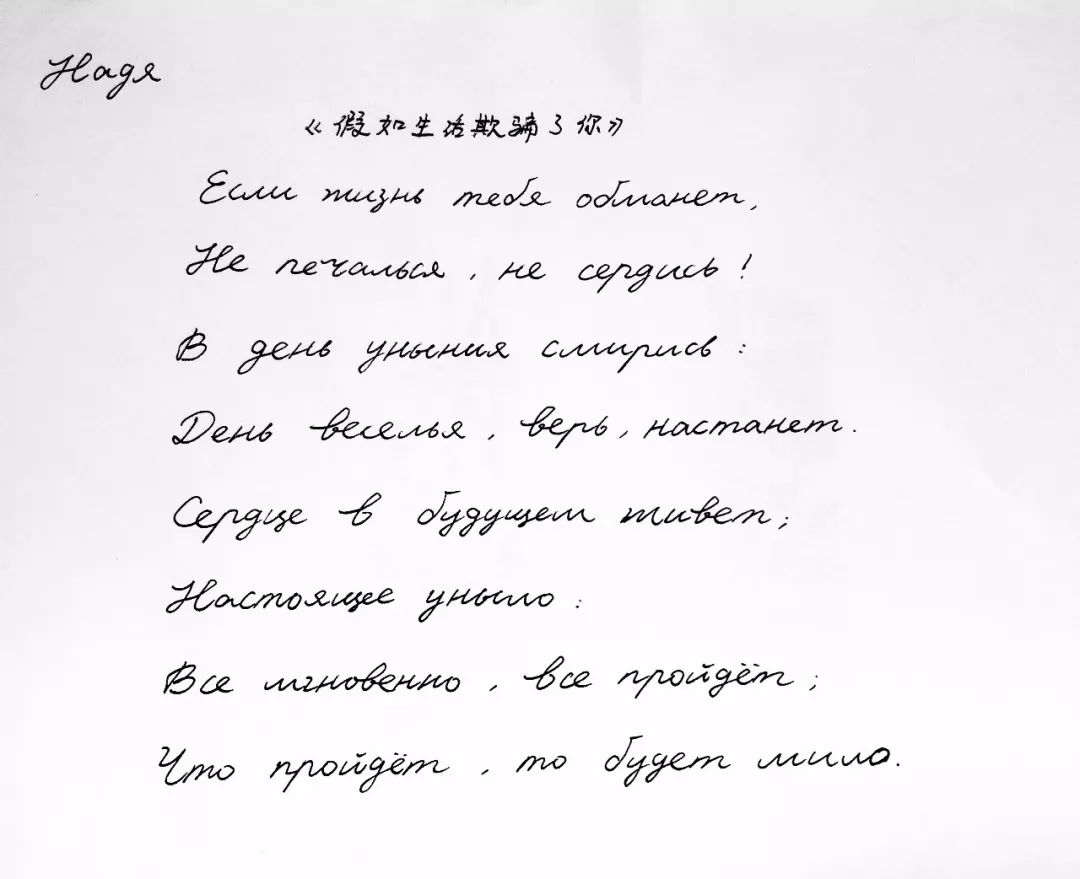 Надя
《假如生活欺骗了你》
Если жизнь тебя обманет,
Не печалься, не сердись!
В день уныния смирись:
День веселья, верь, настанет.
Сердце в будущем живет;
Настоящее уныло:
Все мгновенно, все пройдёт;
Что пройдёт, то будет мило.